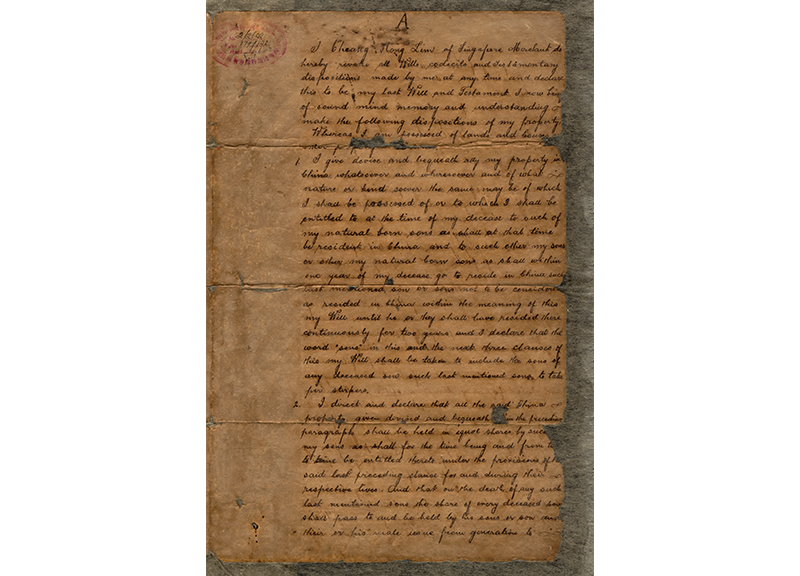 A
I Cheang Hong Lim of Singapore Merchant do
hereby revoke all Wills, codicils and Testamentary
dispositions made by me at any time and declare
this to be my last Will and Testament I now being
of sound mind memory and understanding
make the following dispositions of my property
Whereas I am possessed of lands and
1. I give devise and bequeath all my property in
China whatsoever and wheresoever and of what
nature or kind soever the same may be of which
I shall be possessed of or to which I shall be
entitled to at the time of my decease to such of
my natural born sons as shall at that time
be resident in China and to such other my son
or other my natural born sons as shall within
one year of my decease go to reside in China such
last mentioned son or sons not to be considered
as resided in China within the meaning of this
my Will until he or they shall have resided there
continuously for two years and I declare that the
word "sons" in this and the next three clauses of
this my Will shall be taken to include the sons of
any deceased son such last mentioned sons to take
per stirpes.
2. I direct and declare that all the said China
property given devised and bequeath in the preceding
paragraph shall be held in equal shares by such
my sons as shall for the time being and from time
to time be entitled thereto under the provisions of the
said last preceding clause for and during their
respective lives. And that on the death of any such
last mentioned sons the share of every deceased son
shall pass to and be held by his sons or son and
their or his male issue from generation to